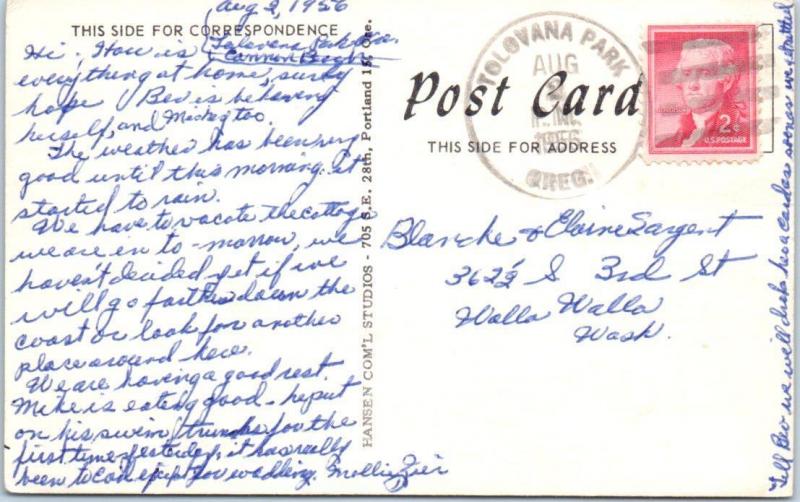 Aug 2, 1956
THIS SIDE FOR CORRESPONDENCE
Tolovana Park Ore.
Cannon Beach
Hi; How is
everything at home, surly
hope Bev is behaving
herself, and Mickey too.
The weather has been very
good until this morning. it
started to rain.
We have to vacate the cottage
we are in to-morrow, we
haven't decided yet if we
will go farther down the
coast or look for another
place around here.
We are having a good rest.
Mike is eating good - he put
on his swim trunks for the
first time yesterday, it has really
been to cool except for wadding. Mollie Zier
HANSEN COM'L STUDIOS - 705 S.E. 28th, Portland 15, Ore.
Post Card
THIS SIDE FOR ADDRESS
TOLOVANA PARK
AUG
1956
OREG.
2¢
U.S. POSTAGE
Blanche & Elaine Sargent
362½ S 3rd St
Walla Walla
Wash.
Tell Bev we will drop her a card as soon as we're settled